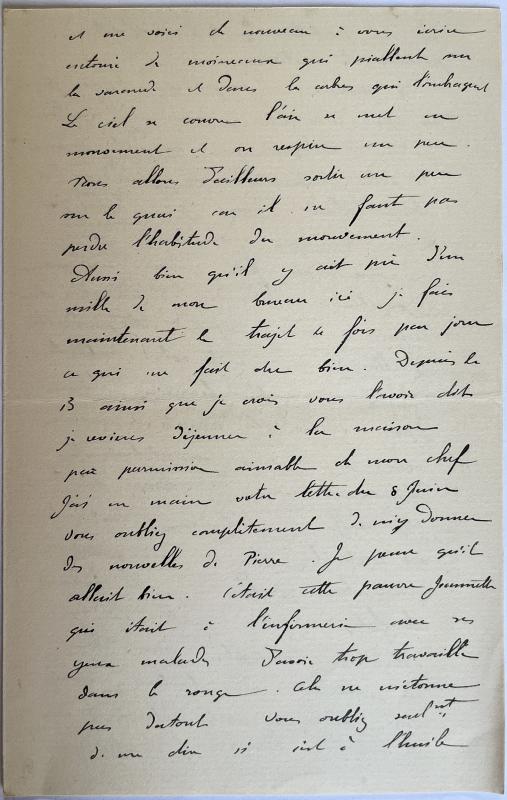 et me voici de nouveau à vous écrire
entouré de moineaux qui piaillent sur
la varande et dans les arbres qui l'ombragent
Le ciel se couvre l'air se met en
mouvement et on respire un peu.
Nous allons d'ailleurs sortir un peu
sur le quai car il ne faut pas
perdre l'habitude du mouvement.
Aussi bien qu'il y ait près d'un
mille de mon bureau ici je fais
maintenant le trajet 4 fois par jour
ce qui me fait du bien. Depuis le
13 ainsi que je crois vous l'avoir dit
je reviens déjeuner à la maison
par permission aimable de mon chef
J'ai en main votre lettre du 8 Juin
vous oubliez complètement de m'y donner
des nouvelles de Pierre. Je pense qu'il
allait bien. C'était cette pauvre Jeannette
qui était à l'infirmerie avec ses
yeux malades d'avoir trop travaillé
dans le rouge. Cela ne m'étonne
pas du tout vous oubliez seulnt
de me dire si c'est à l'huile